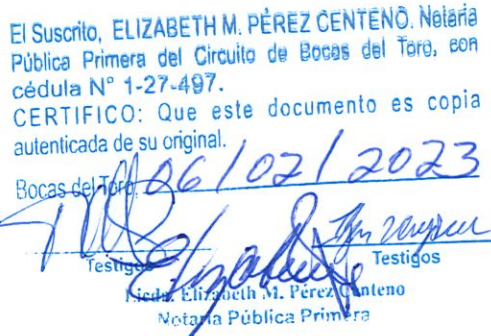 El Suscrito, ELIZABETH M. PÉREZ CENTENO. Notaria
Pública Primera del Circuito de Bocas del Toro, con
cédula N° 1-27-497.
CERTIFICO: Que este documento es copia
autenticada de su original.
Bocas del Toro, 06/02/2023
Testigos Testigos
Licda. Elizabeth M. Pérez Centeno
Notaria Pública Primera